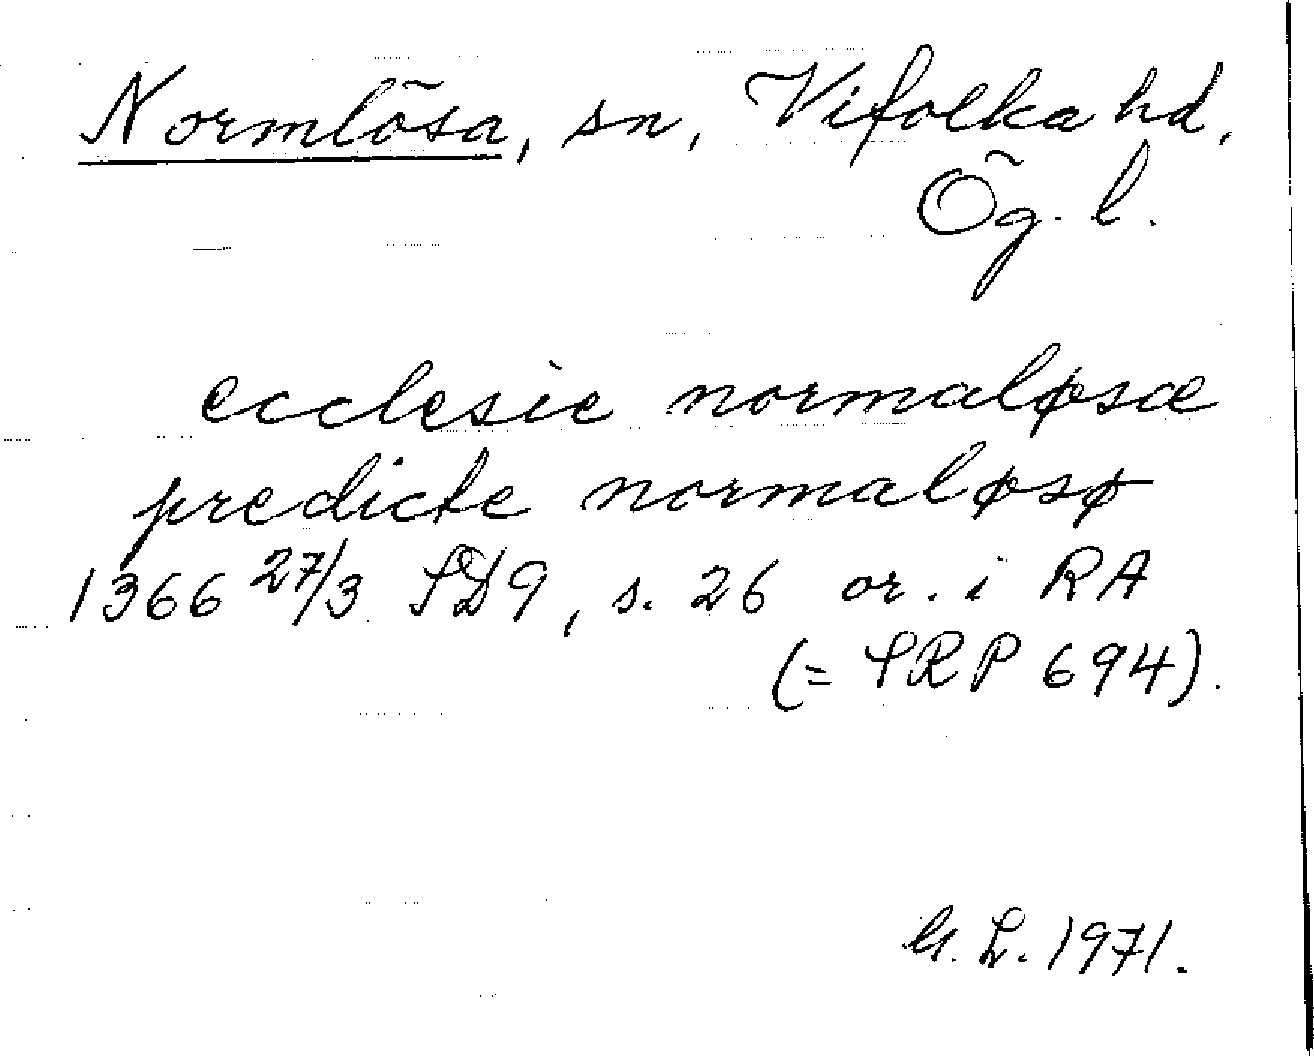 Normlösa, sn, Vifolka hd,
Ög. l.
ecclesie normaløsæ
predicte normaløsø
1366 27/3 SD9, s. 26 or. i RA
(= SRP 694).
G. L. 1971.